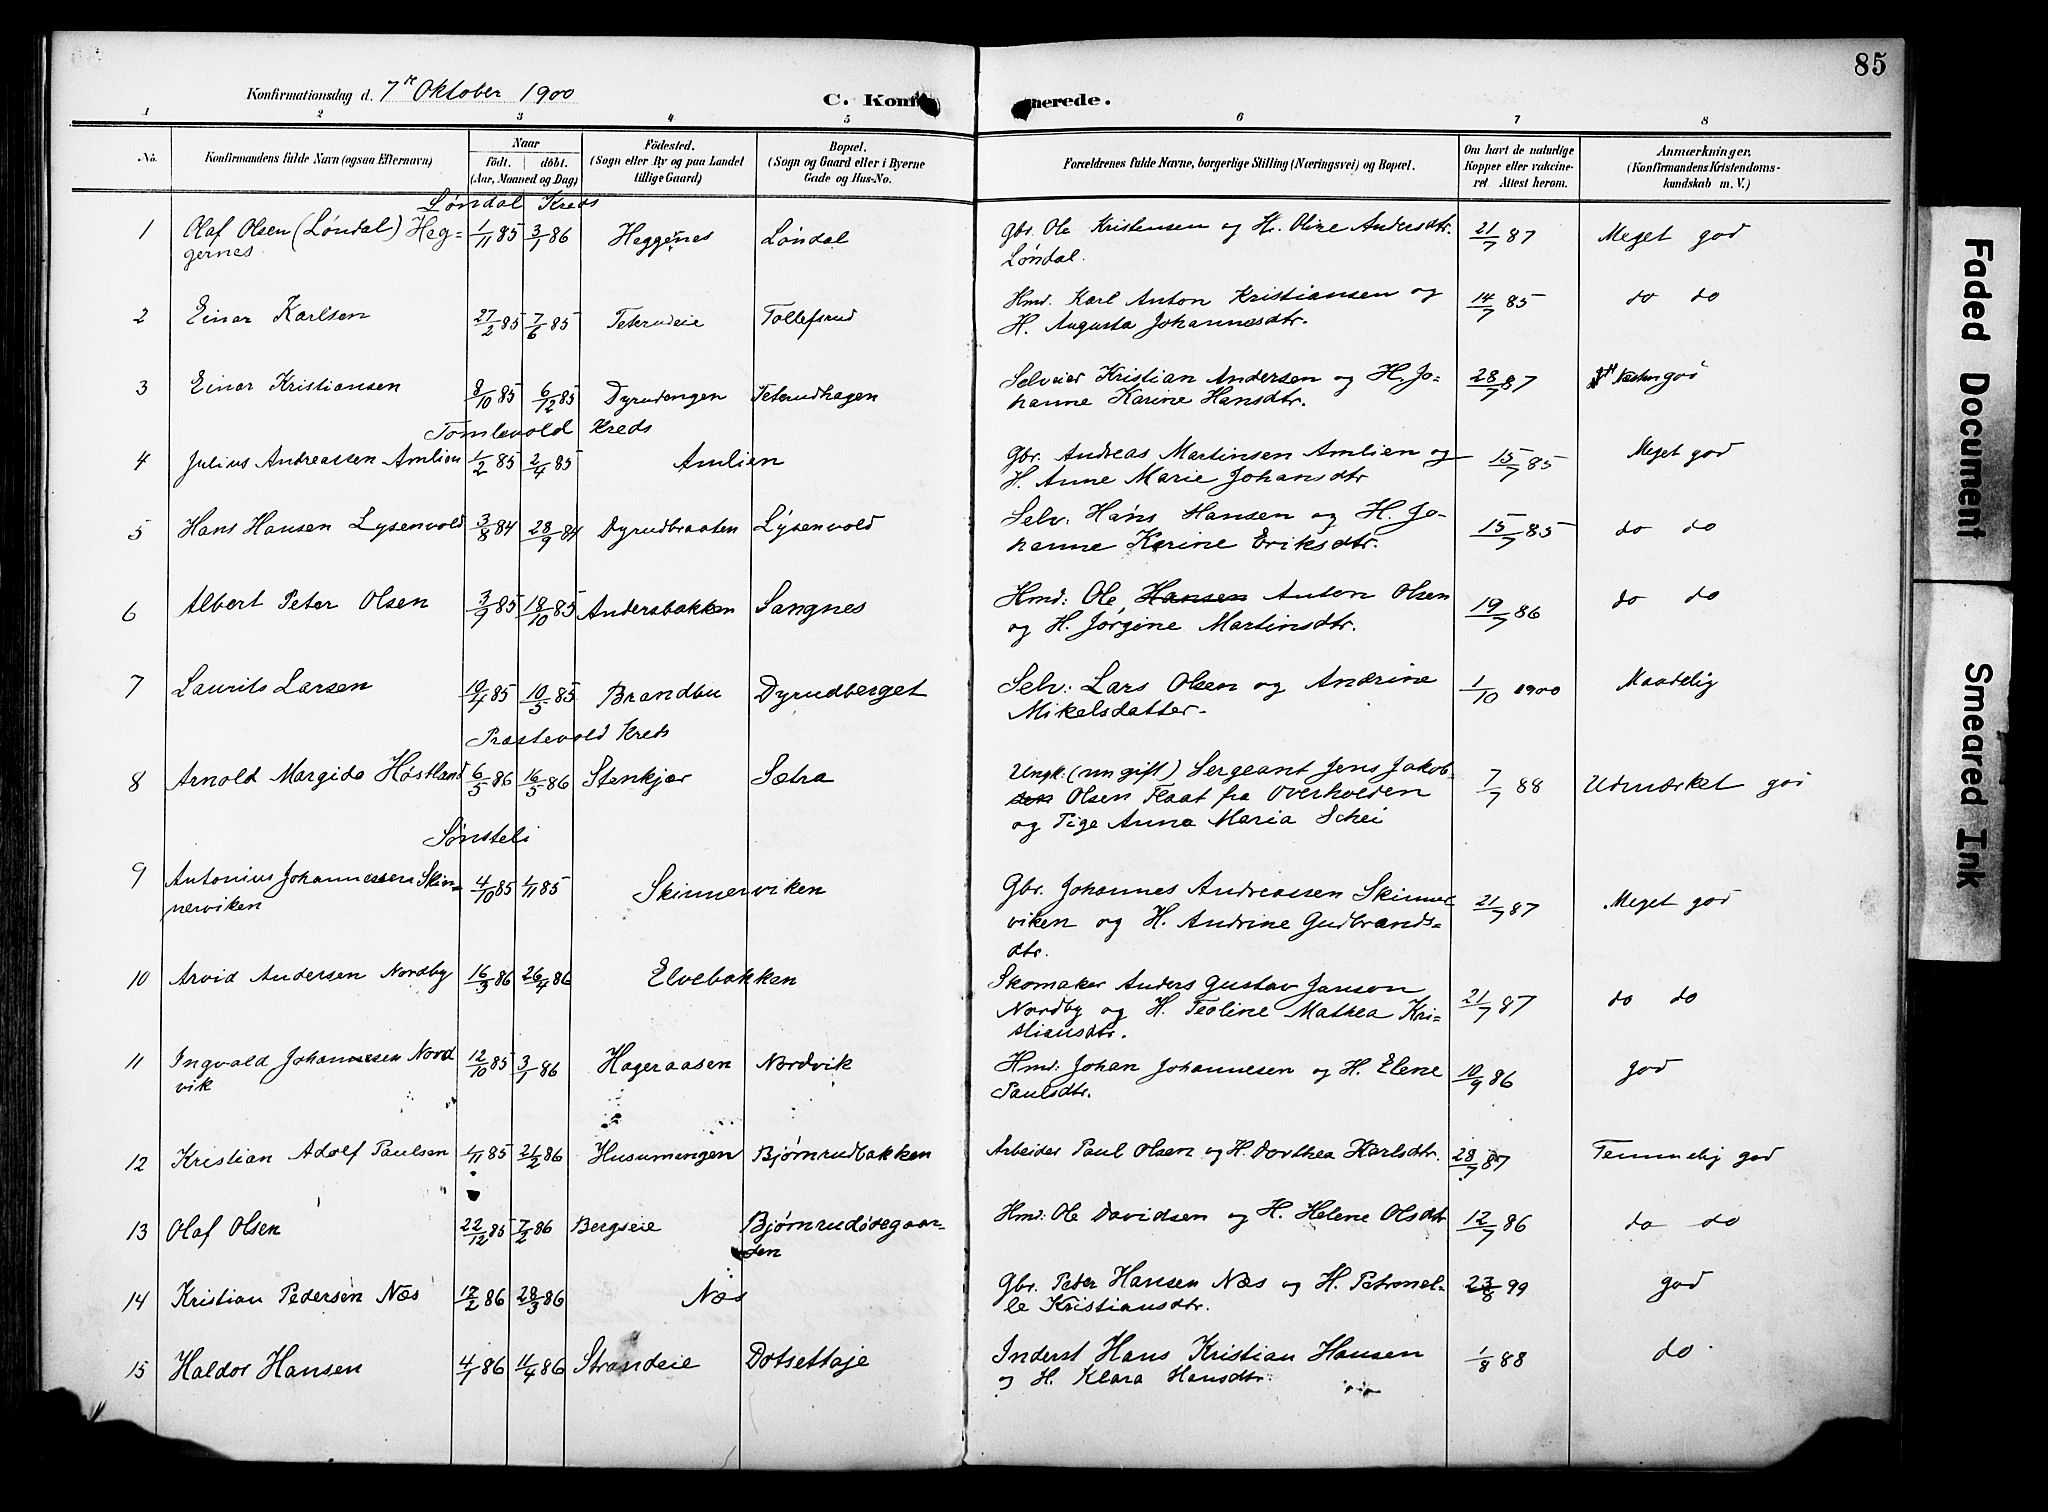 85
Konfirmationsdag d. 7de Oktober 1900
C. Konfi merede.
1 2 3 4 5 6 7 8
No. Konfirmandens fulde Navn (ogsaa Efternavn) Naar födt. döbt. (Aar, Maaned og Dag) Födested. (Sogn eller By og paa Landet tillige Gaard) Bopæl. (Sogn og Gaard eller i Byerne Gade og Hus-No. Forældrenes fulde Navne, borgerlige Stilling (Næringsvei) og Bopæl. Om havt de naturlige Kopper eller vakcineret Attest herom. Anmærkninger. (Konfirmandens Kristendomskundskab m. V.)
Løndal Kreds
1 Olaf Olsen (Løndal) Heg- 1/11 85 3/1 86 Heggenes Løndal Gbr. Ole Kristensen og H. Oline Andersdtr. 21/7 87 Meget god
gernes. Løndal.
2 Einar Karlsen 27/2 85 7/6 85 Teterudeie Tollefsrud Hmd. Karl Anton Kristiansen og 14/7 85 do do
H. Augusta Johannesdtr.
3 Einar Kristiansen 8/10 85 6/12 85 Dyrudengen Teterudhagen Selveier Kristian Andersen og H. Jo- 28/7 87 Næsten god
hanne Karine Hansdtr.
Tomlevold Kreds
4 Julius Andreassen Amlien 1/2 85 2/4 85 Amlien Gbr. Andreas Martinsen Amlien og 15/7 85 Meget god
H. Anne Marie Johansdtr
5 Hans Hansen Lysenvold 3/8 84 28/9 84 Dyrudbraaten Lysenvold Selv: Hans Hansen og H. Jo- 15/7 85 do do
hanne Karine Eriksdtr.
6 Albert Peter Olsen 3/9 85 18/10 85 Andersbakken Sangnes Hmd: Ole Hansen Anton Olsen 19/7 86 do do
og H. Jørgine Martinsdtr.
7 Laurits Larsen 19/4 85 10/5 85 Brandbu Dyrudberget Selv: Lars Olsen og Andrine 1/10 1900 Maadelig
Mikelsdatter.
Præstevold Kreds
8 Arnold Margido Høstland 6/5 86 16/5 86 Stenkjær Sætra Ungk. (un gift) Sergeant Jens Jakob- 7/7 88 Udmærket god
sen Olsen Flaat fra Overholden
og Pige Anna Maria Schei
Sønsteli
9 Antonius Johannessen Skin- 4/10 85 1/11 85 Skinnerviken Gbr. Johannes Andreassen Skinner 21/7 87 Meget god
nerviken viken og H. Andrine Gudbrands-
dtr.
10 Arvid Andersen Nordby 16/3 86 26/4 86 Elvebakken Skomaker Anders Gustav Janson 21/7 87 do do
Nordby og H. Teoline Mathea Kri-
stiansdtr.
11 Ingvald Johannesen Nord 12/10 85 3/1 86 Hageraasen Nordvik Hmd: Johan Johannesen og H. Elene 10/9 86 god
vik Paulsdtr.
12 Kristian Adolf Paulsen 1/11 85 21/2 86 Husumengen Bjørnrudbakken Arbeider Paul Olsen og H. Dorthea Karlsdtr. 28/7 87 Temmelig god
13 Olaf Olsen 22/12 85 7/2 86 Bergseie Bjørnrudødegaar- Hmd: Ole Davidsen og H. Helene Olsdtr 12/7 86 do do
den
14 Kristian Pedersen Næs 12/2 86 28/3 86 Næs Gbr. Peter Hansen Næs og H. Petronel- 23/8 99 god
le Kristiansdtr.
15 Haldor Hansen 4/1 86 11/4 86 Strandeie Dotsettaje Inderst Hans Kristian Hansen 1/8 88 do
og H. Klara Hansdtr.
Faded Document
Smeared Ink